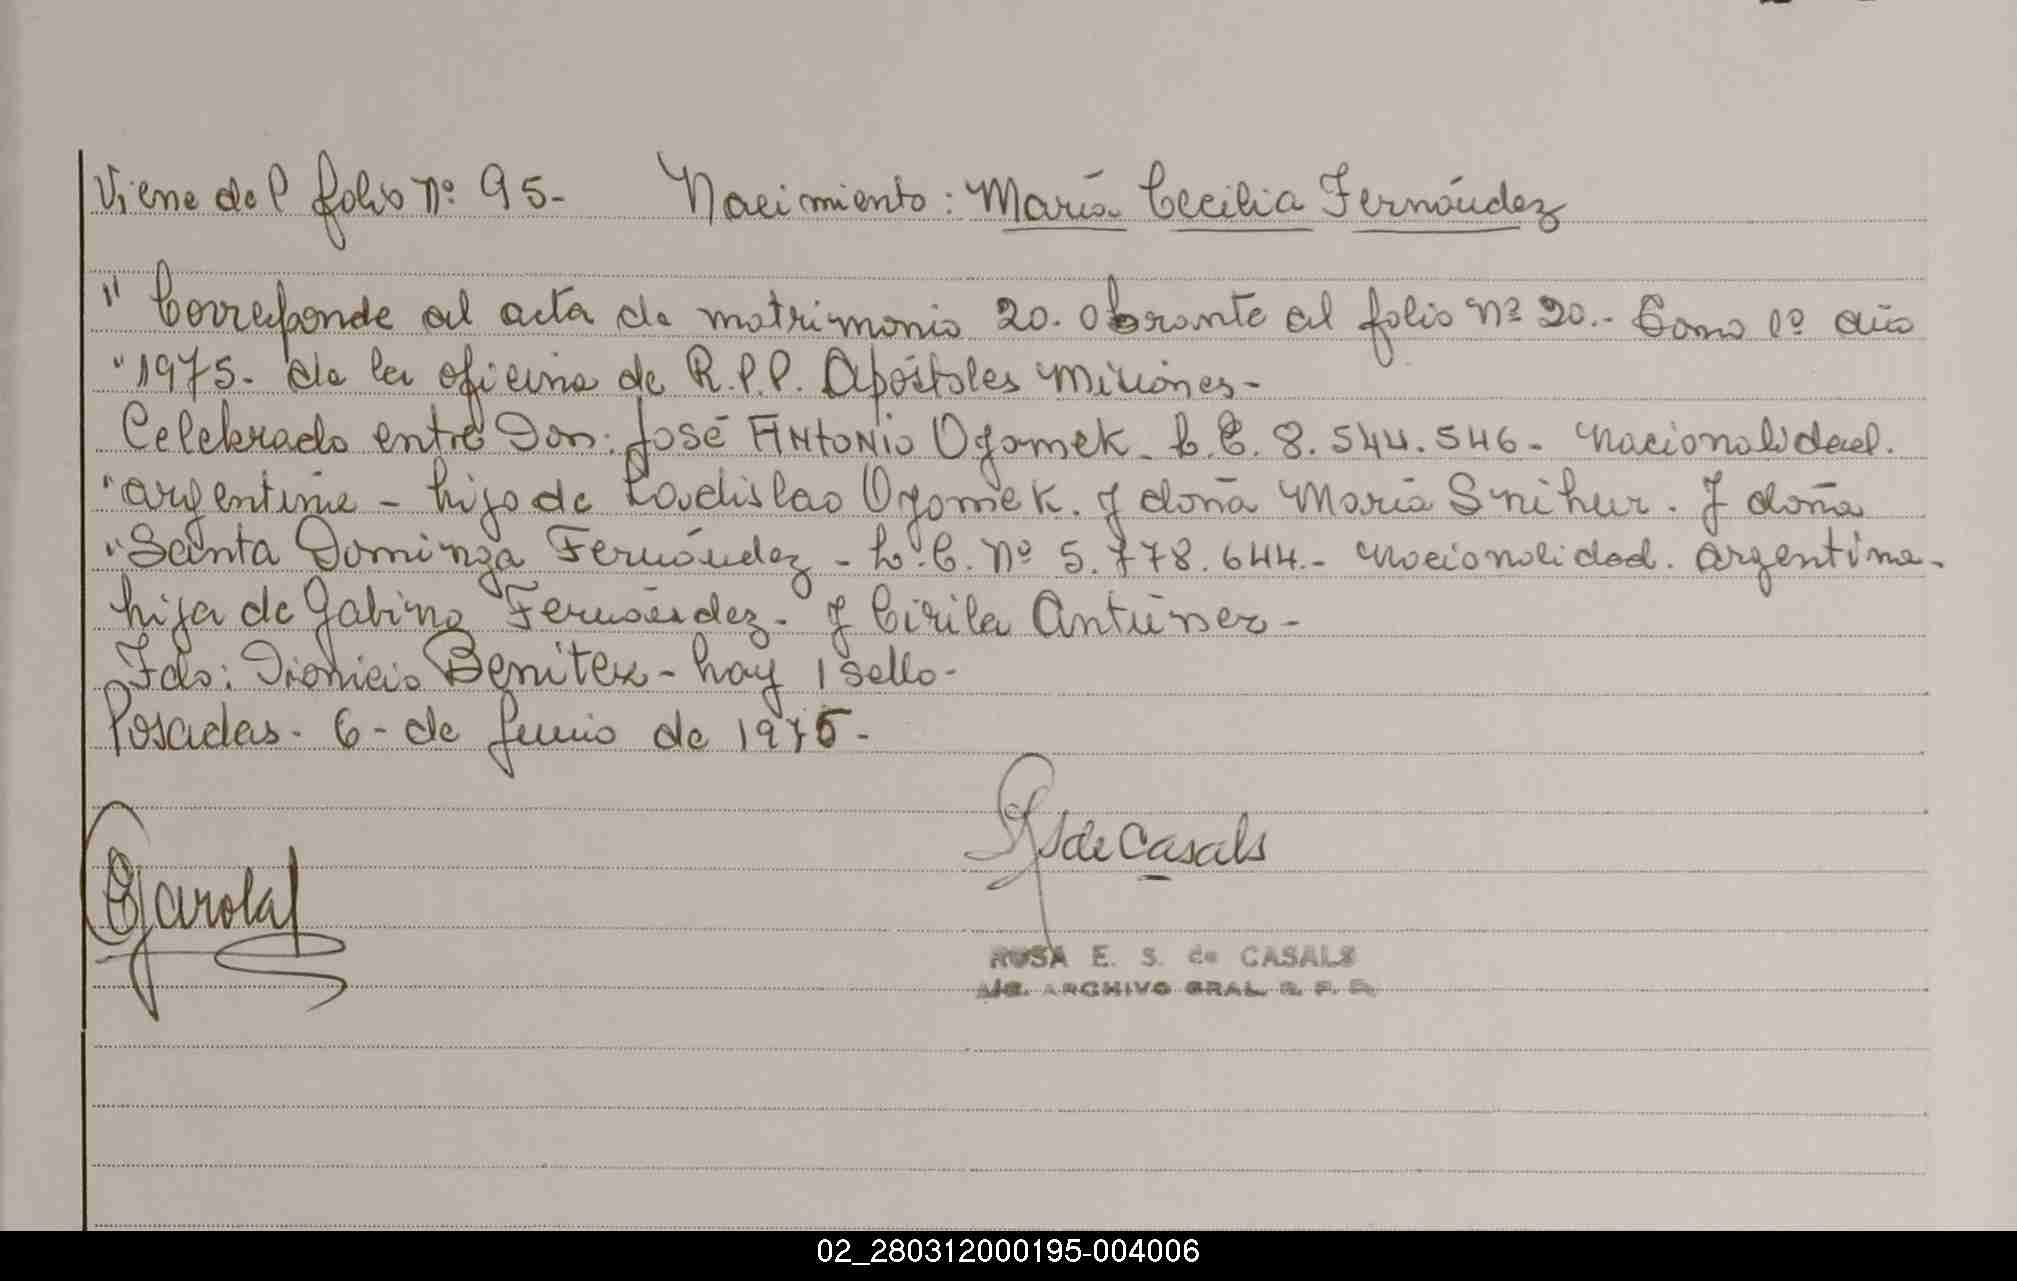 Viene del folio Nº 95- Nacimiento: María Cecilia Fernández
" Corresponde al acta de matrimonio 20. Obrante al folio nº 20.- Tomo 1º año
" 1975. de la oficina de R.P.P. Apóstoles Misiones-
Celebrado entre Don: José Antonio Ogomek. C.E. 8.544.546- nacionalidad.
" argentina - hijo de Ladislao Ogomek. y doña María Snihur. y doña
" Santa Dominga Fernández - L.C. Nº 5.778.644.- nacionalidad. argentina-
hija de Gabino Fernández- y Cirila Antúnez-
Fdo: Dionicio Benitez - hay 1 sello-
Posadas. 6- de Junio de 1975-
de Casals
ROSA E. S. de CASALS
ARCHIVO GRAL R. P. P.
02_280312000195-004006